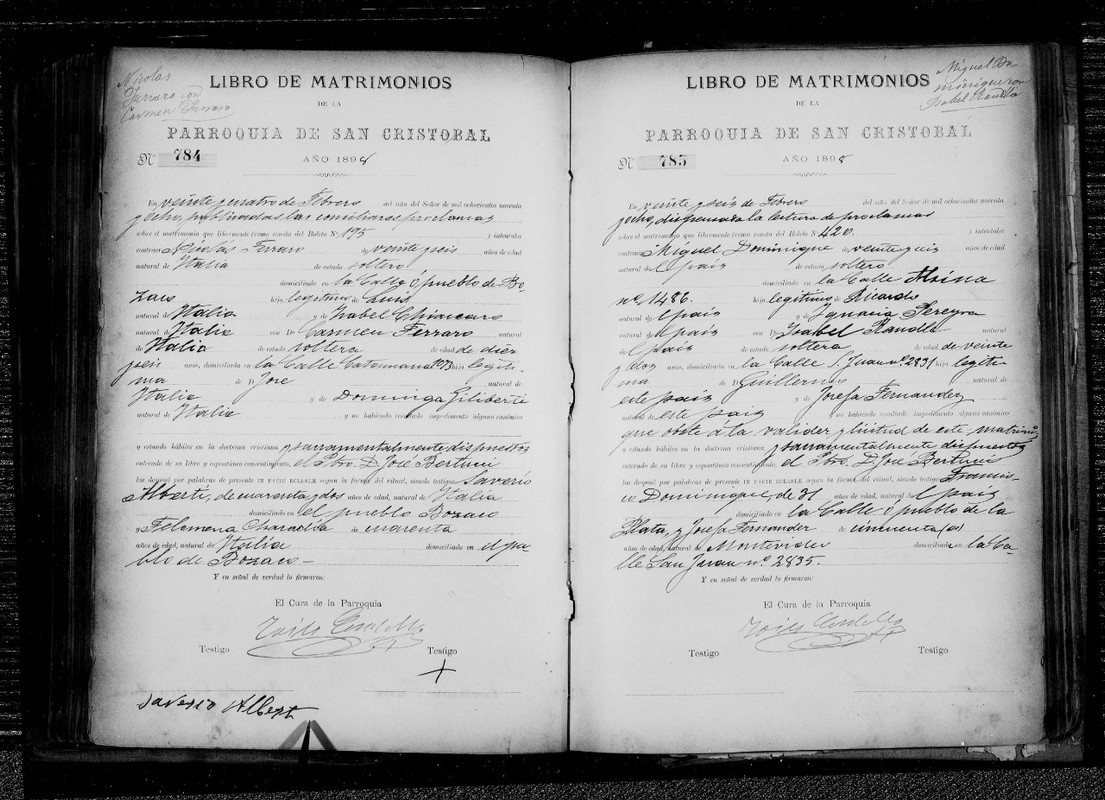 Nicolas
Ferraro con
Carmen Ferraro
LIBRO DE MATRIMONIOS
DE LA
PARROQUIA DE SAN CRISTOBAL
Nº 784
AÑO 1898
En veinte y cuatro de Febrero del año del Señor de mil ochocientos noventa
y ocho, publicadas las conciliares proclamas
sobre el matrimonio que libremente (como consta del Boleto Nº 195 ) intentaba
contraer Nicolás Ferraro de veinte y seis años de edad
natural de Italia de estado soltero
domiciliado en la Calle ó pueblo de Bo-
zaco hijo legítimo de Luis
natural de Italia y de Isabel Chiancaro
natural de Italia con Dª Carmen Ferraro natural
de Italia de estado soltera de edad de diez
y seis anos, domiciliada en la Calle Catamarca nº 73 hija legíti-
ma de D José natural de
Italia y de Dominga Giliberti
natural de Italia y no habiendo resultado impedimento alguno canónico
y estando hábiles en la doctrina cristiana y sacramentalmente dispuestos
enterado de su libre y espontáneo consentimiento, el Pbro. D José Bertucci
los desposó por palabras de presente IN FACIE ECLESLÆ segun la forma del ritual, siendo testigos Saverio
Alberti, de cuarenta y dos años de edad, natural de Italia
domiciliado en el pueblo Bozaco
y Filomena de cuarenta
años de edad, natural de Italia domiciliado en el pue
blo de Bozaco -
Y en señal de verdad lo firmaron:
El Cura de la Parroquia
Testigo Testigo
+
Saverio Albert
Miguel Do-
minique con
Isabel Randle
LIBRO DE MATRIMONIOS
DE LA
PARROQUIA DE SAN CRISTOBAL
Nº 785
AÑO 1898
En veinte y seis de Febrero del año del Señor de mil ochocientos noventa
y ocho, dispensada la lectura de proclamas
sobre el matrimonio que libremente (como consta del Boleto N 420. ) intentaba
contraer Miguel Dominique de veinte y seis años de edad
natural del pais de estado soltero
domiciliado en la Calle Alsina
nº 1486. hijo legítimo de Ricardo
natural del pais y de Ignacia Pereyra
natural del pais con Dª Isabel Randle natural
del pais de estado soltera de edad de veinte
y dos anos, domiciliada en la Calle S. Juan nº 2831 hija legíti-
ma de D Guillermo natural de
este pais y de Josefa Fernandez
natural de este pais y no habiendo resultado impedimento alguno canónico
que obste á la validez y licitud de este matrimonio
y estando hábiles en la doctrina cristiana y sacramentalmente dispuestos
enterado de su libre y espontáneo consentimiento, el Pbro. D José Bertucci
los desposó por palabras de presente IN FACIE ECLESLÆ segun la forma del ritual, siendo testigos Francis-
co Dominique, de 31 años de edad, natural del pais
domiciliado en la Calle ó pueblo de la
Plata, y Josefa Fernandez de cincuenta (50)
años de edad, natural de Montevideo domiciliada en la Ca
lle San Juan nº 2835.
Y en señal de verdad lo firmaron:
El Cura de la Parroquia
Testigo Testigo